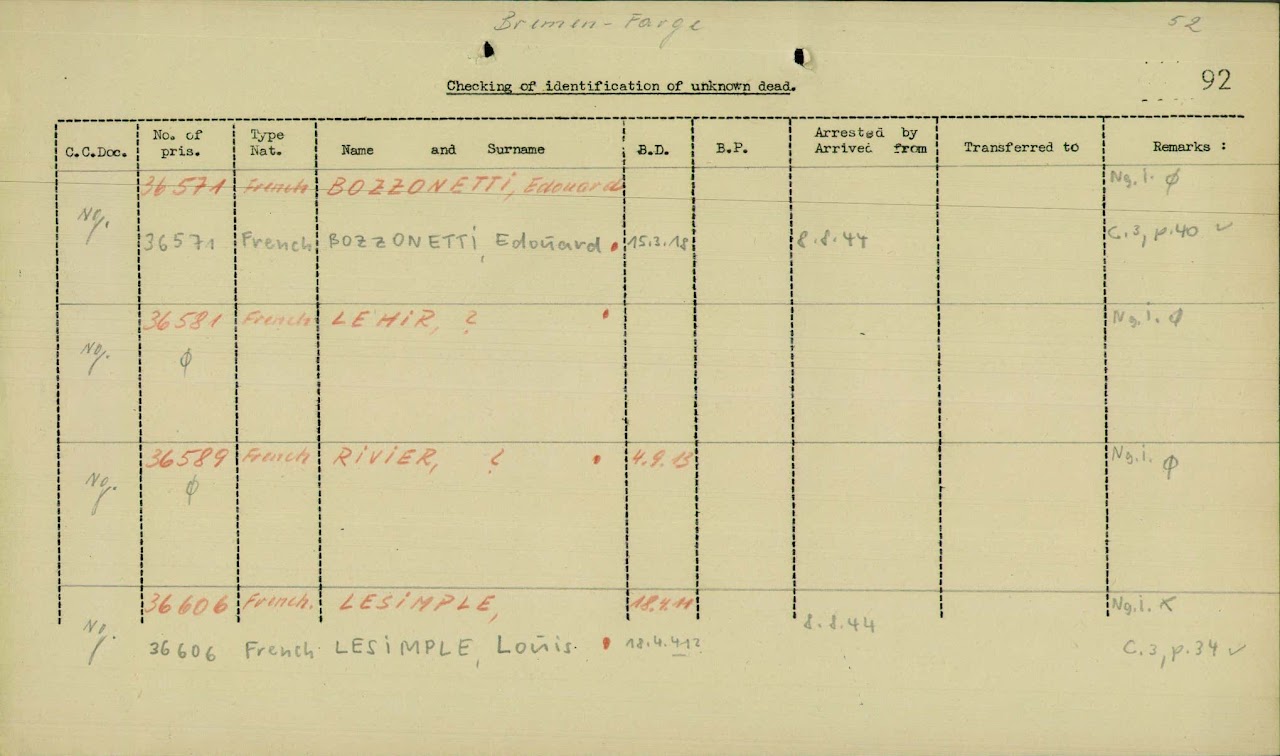 Bremen-Farge 52
Checking of identification of unknown dead. 92
C.C.Doc. No. of pris. Type Nat. Name and Surname B.D. B.P. Arrested by Arrived from Transferred to Remarks :
36571 French BOZZONETTI, Edouard Ng.i. ϕ
Ng. 36571 French BOZZONETTI, Edoŭard 15.3.18 8.8.44 C.3, p.40 ✓
36581 French LEHIR, ? Ng.i. ϕ
Ng. ϕ
36589 French RIVIER, ? 4.9.13 Ng.i. ϕ
Ng. ϕ
36606 French. LESIMPLE, 18.4.11 Ng.i. x
Ng. 36606 French LESIMPLE, Loŭis. 8.8.44 C.3, p.34 ✓